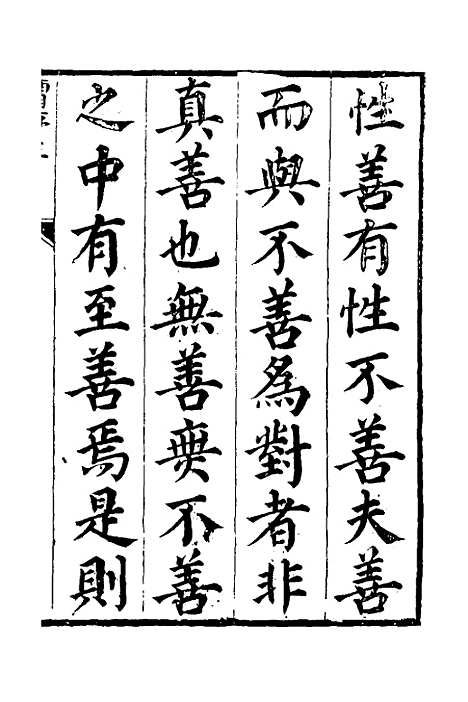 性善有性不善夫善
而與不善為對者非
真善也無善無不善
之中有至善焉是則